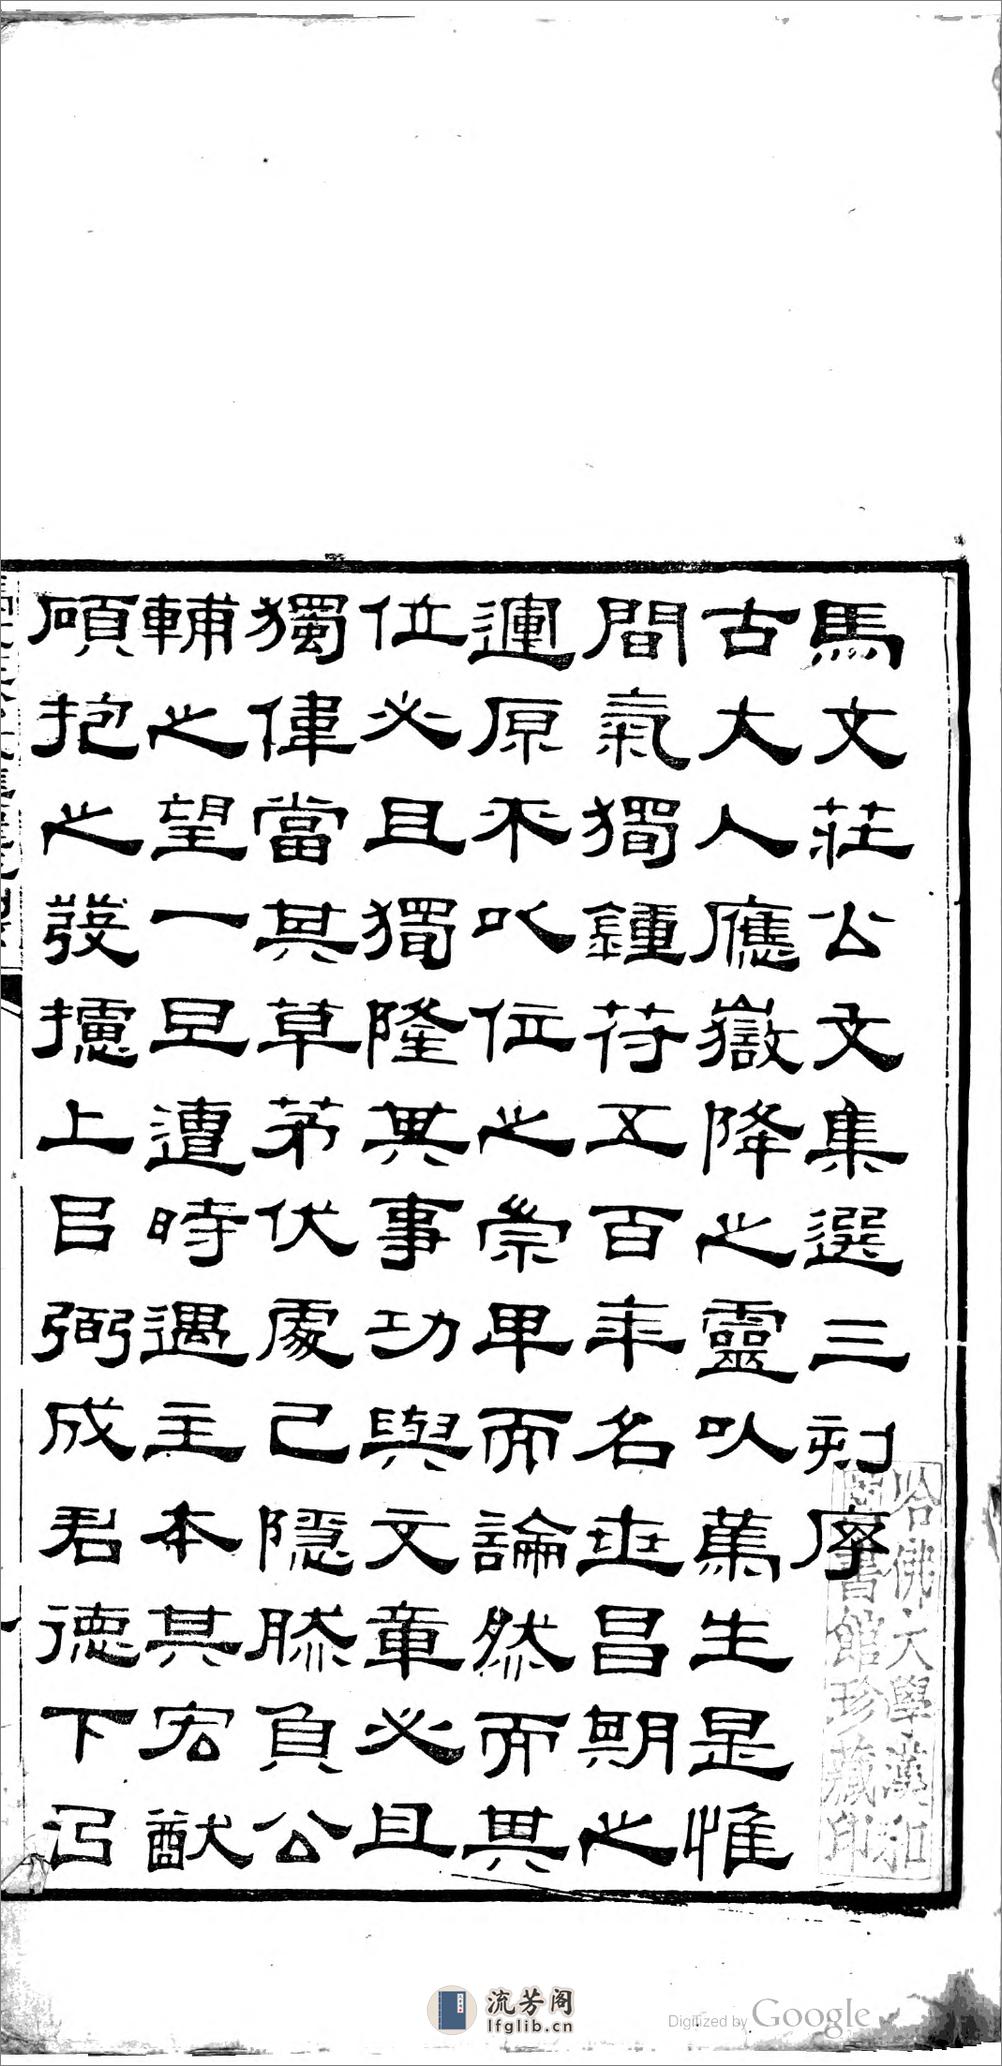 馬文莊公文集選三刻序
古大人應嶽降之靈以篤生是惟
間氣獨鍾符五百年名世昌期之
運原不以位之崇卑而論然而異
位必且獨隆異事功與文章必且
獨偉當其草茅伏處已隱然負公
輔之望一旦遭時遇主本其宏猷
碩抱之發攄上以弼成君德下以
哈佛大學漢和
圖書館珍藏印
流芳阁
lfglib.cn
Digitized by Google